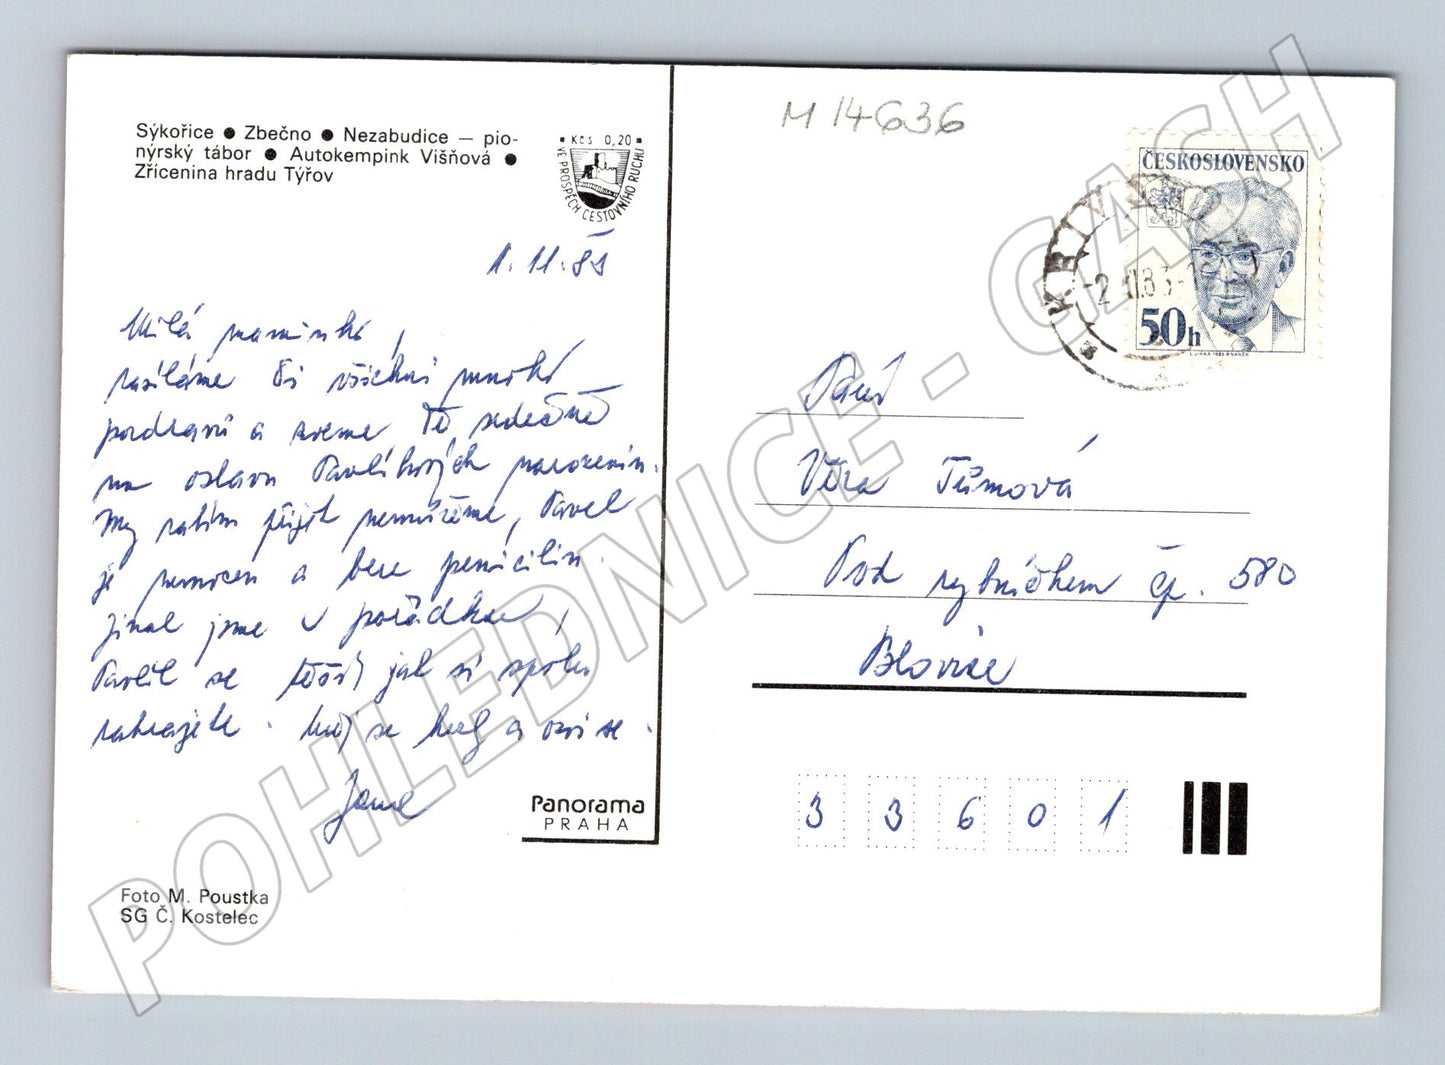 Sýkořice ● Zbečno ● Nezabudice — pio-
nýrský tábor ● Autokempink Višňová ●
Zřícenina hradu Týřov
Kčs 0,20
VE PROSPĚCH CESTOVNÍHO RUCHU
1. 11. 83
Milá maminko,
zasíláme Ti všichni mnoho
pozdravů a zveme Tě srdečně
na oslavu Pavlíkových narozenin.
My zatím přijet nemůžeme, Pavel
je nemocen a bere penicilin.
Jinak jsme v pořádku,
Pavlík se těší jak si spolu
zahrajete. Měj se hezky a ozvi se.
Jana
Panorama
PRAHA
Foto M. Poustka
SG Č. Kostelec
M 14636
ČESKOSLOVENSKO
50h
-2.11.83-
Paní
Věra Tůmová
Pod rybníčkem čp. 580
Blovice
3 3 6 0 1
POHLEDNICE - GASH